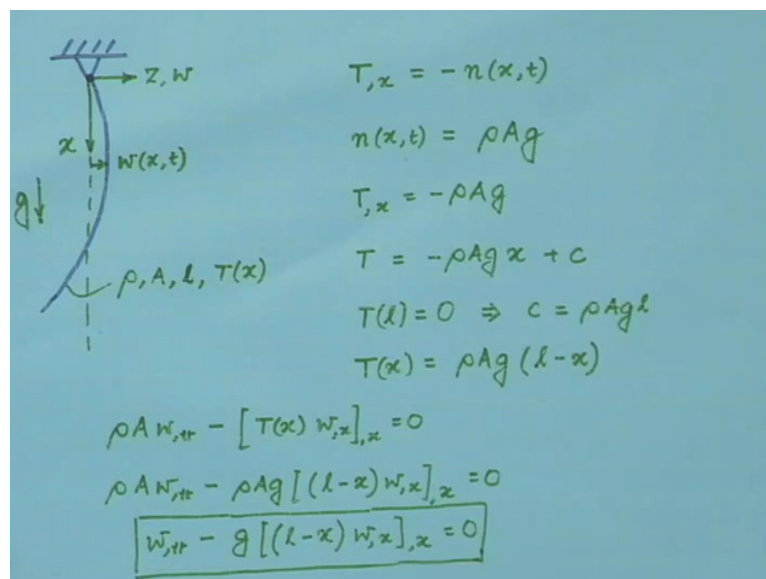 z, w
x
w(x,t)
g
ρ, A, l, T(x)
T,x = -n(x,t)
n(x,t) = ρAg
T,x = -ρAg
T = -ρAg x + c
T(l) = 0 ⇒ c = ρAgl
T(x) = ρAg (l-x)
ρA w,tt - [T(x) w,x],x = 0
ρA w,tt - ρAg [(l-x) w,x],x = 0
w,tt - g [(l-x) w,x],x = 0